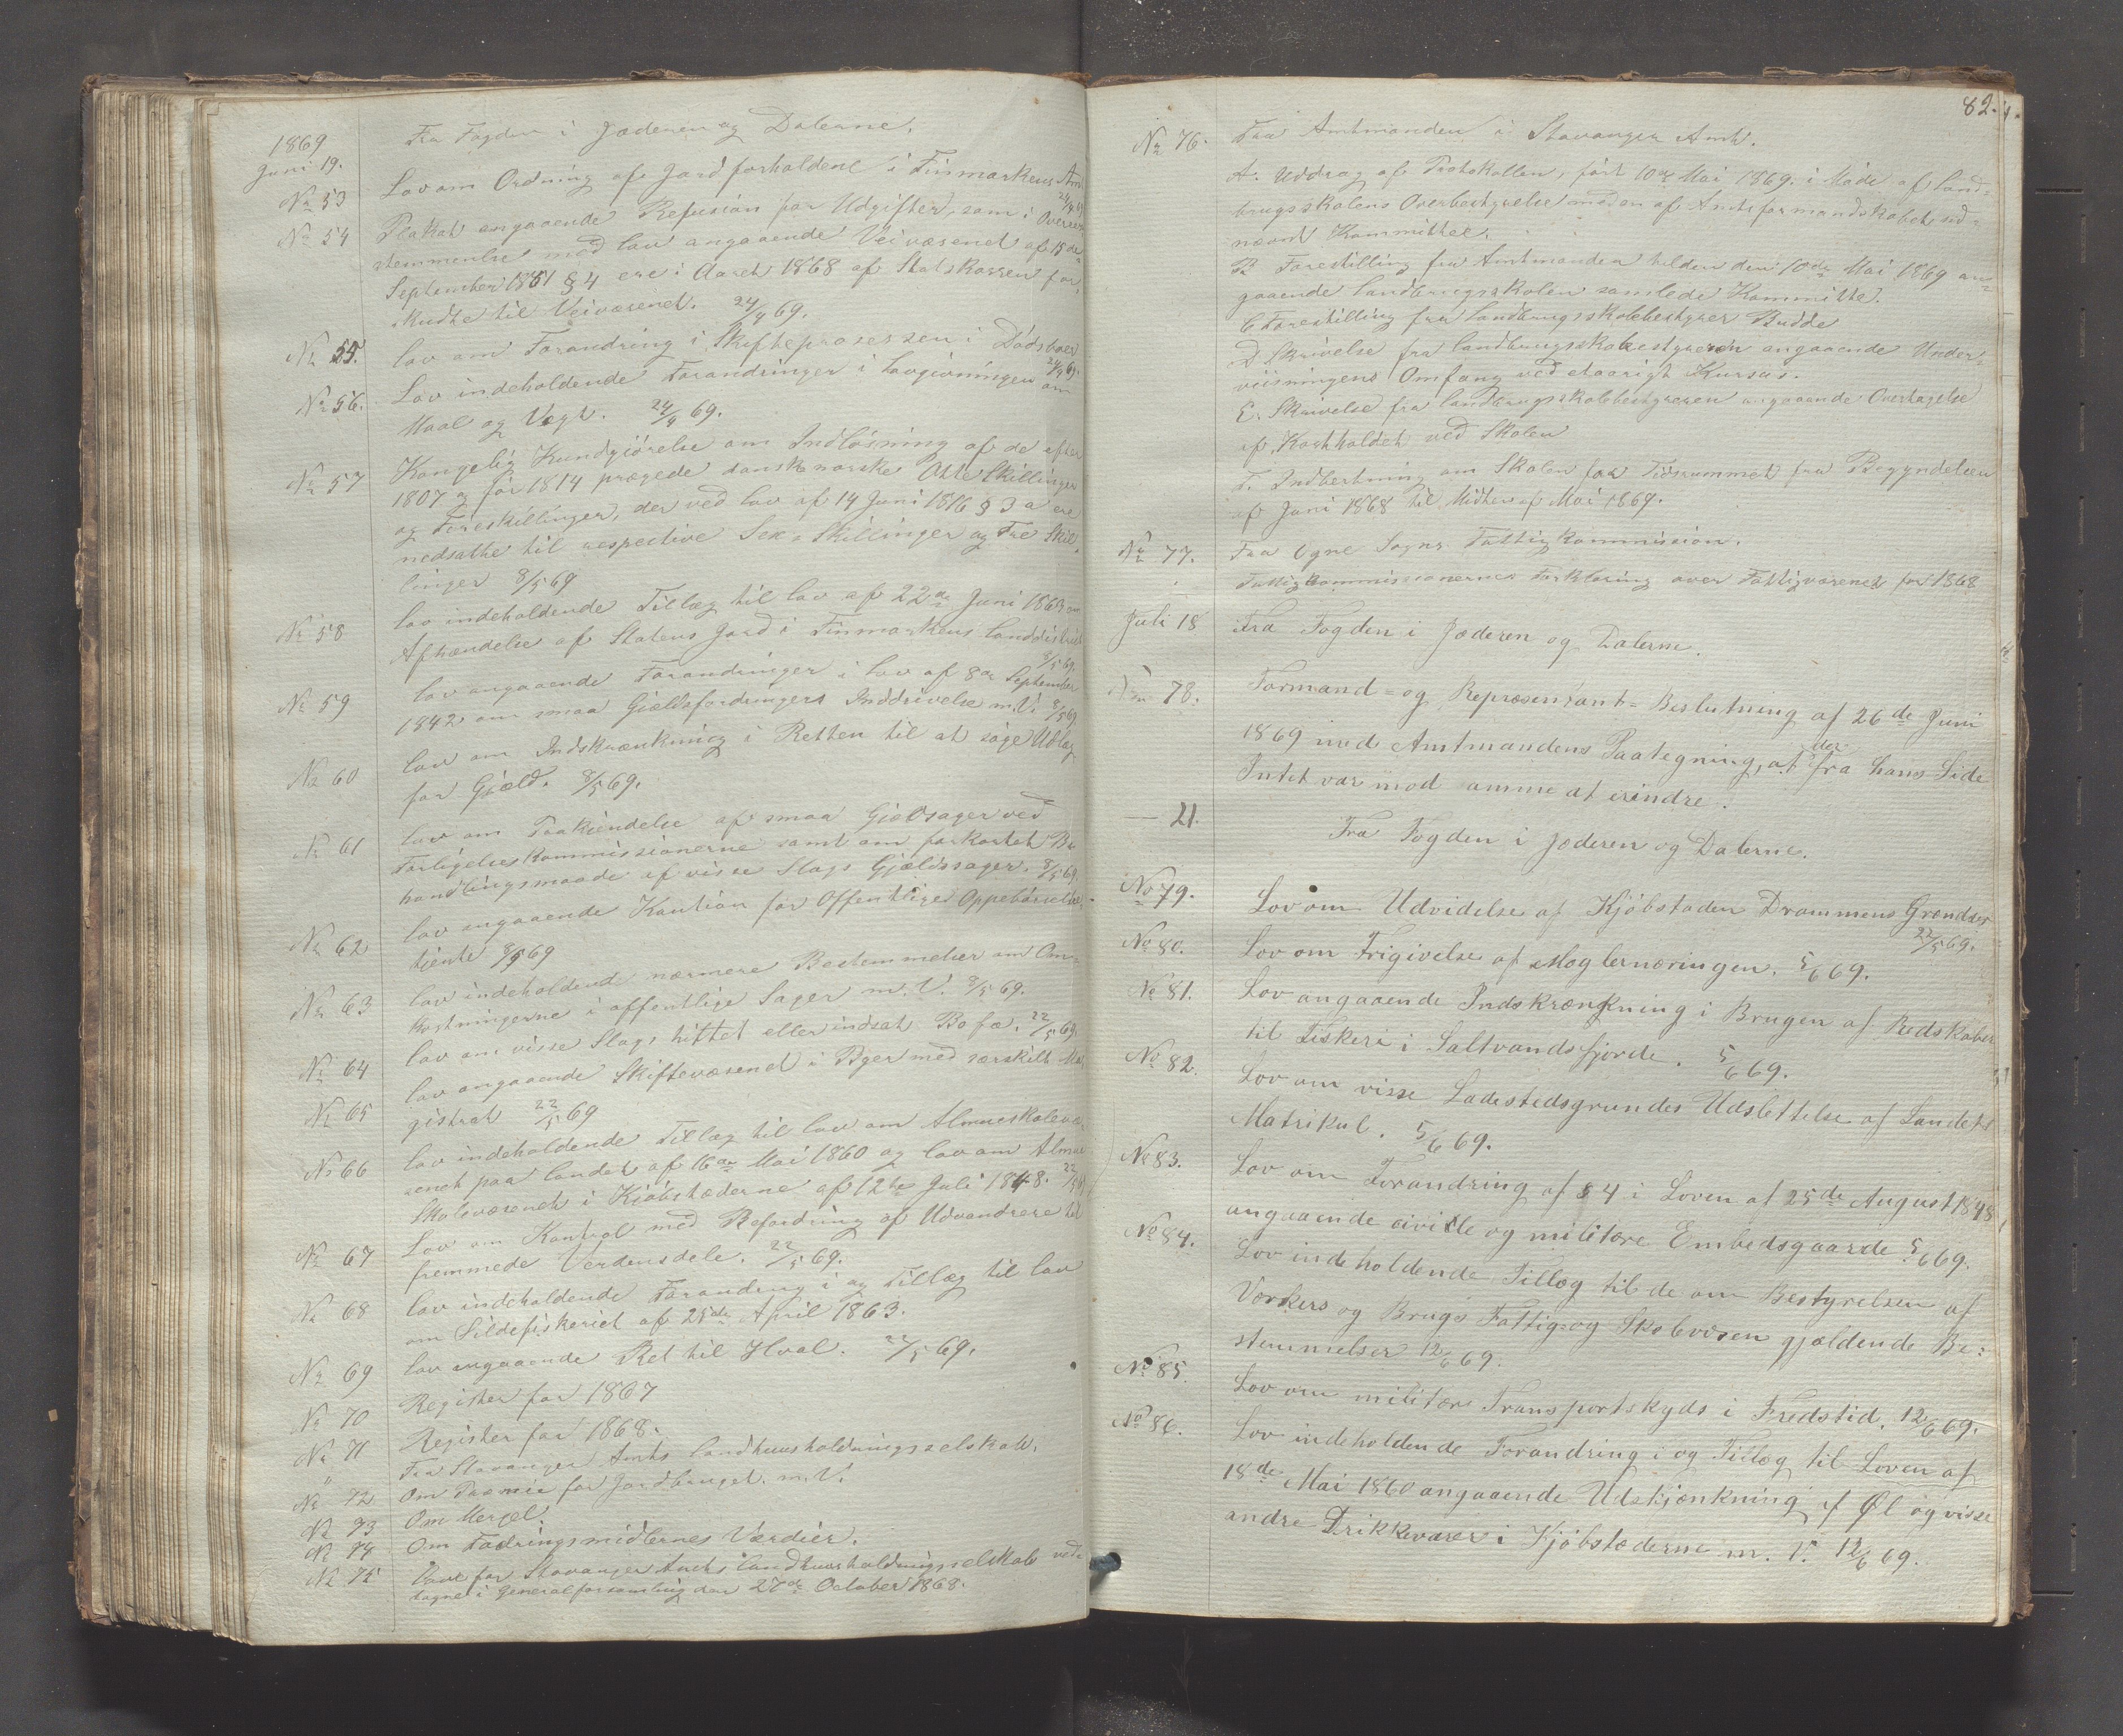 1869
Juni 19.
Fra Fogden i Jæderen og Dalerne.
No 53 Lov om Ordning af Jordforholdene i Finmarkens Amt 24/4 69
No 54 Plakat angaaende Refusion for Udgifter, som i Overens
stemmelse med Lov angaaende Veivæsenet af 15de
September 1851 § 4 ere i Aaret 1868 af Statskassen for,
skudte til Veivæsenet. 24/4 69.
No 55. Lov om Forandring i Skifteprosessen i Dødsboer 24/4 69.
No 56. Lov indeholdende Forandringer i Lovgivningen om
Maal og Vægt. 24/4 69.
No 57 Kongelig Kundgjørelse om Indløsning af de efter
1807 og før 1814 prægede dansk norske Otte Skillinger
og Fireskillinger, der ved Lov af 14 Juni 1816 § 3 a ere
nedsatte til respective Sex Skillinger og Tre Skil,
linger 8/5 69
No 58 Lov indeholdende Tillæg til Lov af 22de Juni 1863 om
Afhændelse af Statens Jord i Finmarkens Landdistrikt
8/5 69.
No 59 Lov angaaende Forandringer i Lov af 8de September
1842 om smaa Gjældsfordringers Inddrivelse m. V. 8/5 69
No 60 Lov om Indskrænkning i Retten til at søge Udlæg
for Gjæld. 8/5 69.
No 61 Lov om Paakjendelse af smaa Gjældsager ved
Forligelseskommissionerne samt om forkortet Be
handlingsmaade af visse Slags Gjældssager. 8/5 69.
No 62 Lov angaaende Kaution for Offentlige Oppebørsels
tjente 8/5 69
No 63 Lov indeholdende nærmere Bestemmelser om Om=
kostningerne i offentlige Sager m. V. 8/5 69.
No 64 Lov om visse Slags hittet eller indsat Bofæ. 22/5 69.
No 65 Lov angaaende Skiftevæsenet i Byer med særskilt Ma,
gistrat 22/5 69
No 66 Lov indeholdende Tillæg til Lov om Almueskolevæ
senet paa Landet af 16de Mai 1860 og Lov om Almue
Skolevæsenet i Kjøbstæderne af 12te Juli 1848. 22/5 69
No 67 Lov om Kontrol med Befordring af Udvandrere til
fremmede Verdensdele. 22/5 69.
No 68 Lov indeholdende Forandring i og Tillæg til Lov
om Sildefiskeriet af 25de April 1863.
No 69 Lov angaaende Ret til Hval. 22/5 69.
No 70 Register for 1867
No 71 Register for 1868.
" Fra Stavanger Amts Landhuusholdningsselskab.
No 72 Om Præmie for Jordbruget. m. V.
No 73 Om Mergel.
No 74 Om Fodringsmidlernes Værdier.
No 75 Love for Stavanger Amts Landhuusholdningsselskab ved=
tagne i Generalforsamling den 27de October 1868.
82.
No 76. Fra Amtmanden i Stavanger Amt.
A. Uddrag af Protokollen, ført 10de Mai 1869. i Møde af Land=
brugsskolens Overbestyrelse med en af Amtsformandskabet ud=
nævnt Kommittee.
B Forestilling fra Amtmanden til den den 10de Mai 1869 an=
gaaende Landbrugsskolen samlede Kommitte.
C Forestilling fra Landbrugsskolebestyrer Budde
D. Skrivelse fra Landbrugsskolebestyreren angaaende Under=
viisningens Omfang ved etaarigt Kursus.
E. Skrivelse fra Landbrugsskolebestyreren angaaende Overtagelse
af Kostholdet ved Skolen
F. Indberetning om Skolen for Tidsrummet fra Begyndelsen
af Juni 1868 til Midten af Mai 1869.
No 77. Fra Ogne Sogns Fattigkommission.
Fattigkommissionernes Forklaring over Fattigvæsenet for 1868
Juli 18 Fra Fogden i Jæderen og Dalerne.
No 78. Formand= og Repræsentant= Beslutning af 26de Juni
1869 med Amtmandens Paategning, at der fra hans Side
Intet var mod samme at erindre.
— 21. Fra Fogden i Jæderen og Dalerne.
No 79. Lov om Udvidelse af Kjøbstaden Drammens Grændser
22/5 69.
No 80. Lov om Frigivelse af Møglernæringen. 5/6 69.
No 81. Lov angaaende Indskrænkning i Brugen af Redskaber
til Fiskeri i Saltvandsfjorde. 5/6 69.
No 82. Lov om visse Ladestedsgrundes Udslettelse af Landets
Matrikul. 5/6 69.
No 83. Lov om Forandring af § 4 i Loven af 25de August 1848
angaaende civile og militære Embedsgaarde 5/6 69.
No 84. Lov indeholdende Tillæg til de om Bestyrelsen af
Værkers og Brugs Fattig= og Skolevæsen gjældende Be=
stemmelser 12/6 69.
No 85. Lov om militær Transportskyds i Fredstid. 12/6 69.
No 86. Lov indeholdende Forandring i og Tillæg til Loven af
18de Mai 1860 angaaende Udskjænkning af Øl og visse
andre Drikkevarer i Kjøbstæderne m. V. 12/6 69.